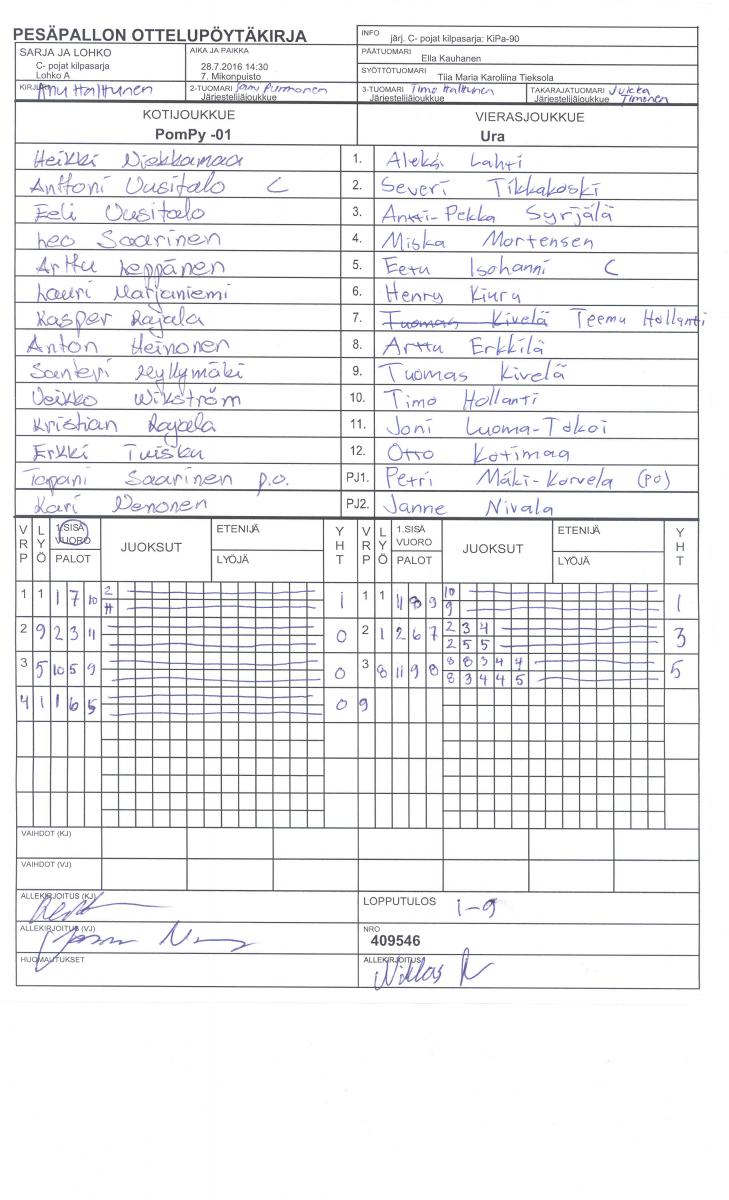 PESÄPALLON OTTELUPÖYTÄKIRJA
INFO järj. C- pojat kilpasarja: KiPa-90
SARJA JA LOHKO
C- pojat kilpasarja
Lohko A
AIKA JA PAIKKA
28.7.2016 14:30
7. Mikonpuisto
PÄÄTUOMARI
Ella Kauhanen
SYÖTTÖTUOMARI
Tiia Maria Karoliina Tieksola
KIRJURI Anu Halttunen
2-TUOMARI
Järjestelijäjoukkue
3-TUOMARI Timo Halttunen
Järjestelijäjoukkue
TAKARAJATUOMARI Jukka
Järjestelijäjoukkue Timonen
KOTIJOUKKUE
PomPy -01
VIERASJOUKKUE
Ura
Heikki Niekkamaa 1. Aleksi Lahti
Anttoni Uusitalo C 2. Severi Tikkakoski
Eeli Uusitalo 3. Antti-Pekka Syrjälä
Leo Saarinen 4. Miska Mortensen
Arttu Leppänen 5. Eetu Isohanni C
Lauri Marjaniemi 6. Henry Kiuru
Kasper Rajala 7. Tuomas Kivelä Teemu Hollanti
Anton Heinonen 8. Arttu Erkkilä
Santeri Myllymäki 9. Tuomas Kivelä
Veikko Wikström 10. Timo Hollanti
Kristian Rajala 11. Joni Luoma-Tokoi
Erkki Tuisku 12. Otto Kotimaa
Tapani Saarinen p.o. PJ1. Petri Mäki-Korvela (po)
Kari Nenonen PJ2. Janne Nivala
VRP LYÖ 1.SISÄ VUORO PALOT JUOKSUT ETENIJÄ LYÖJÄ YHT VRP LYÖ 1.SISÄ VUORO PALOT JUOKSUT ETENIJÄ LYÖJÄ YHT
1 1 1 7 10 2 1 1 1 11 8 9 10 1
11 9
2 9 2 3 11 0 2 1 2 6 7 2 3 4 3
2 5 5
3 5 10 5 9 0 3 8 11 9 8 8 8 3 4 4 5
8 3 4 4 5
4 1 1 6 5 0 9
VAIHDOT (KJ)
VAIHDOT (VJ)
ALLEKIRJOITUS (KJ)
LOPPUTULOS 1-9
ALLEKIRJOITUS (VJ)
NRO
409546
HUOMAUTUKSET
ALLEKIRJOITUS Niklas